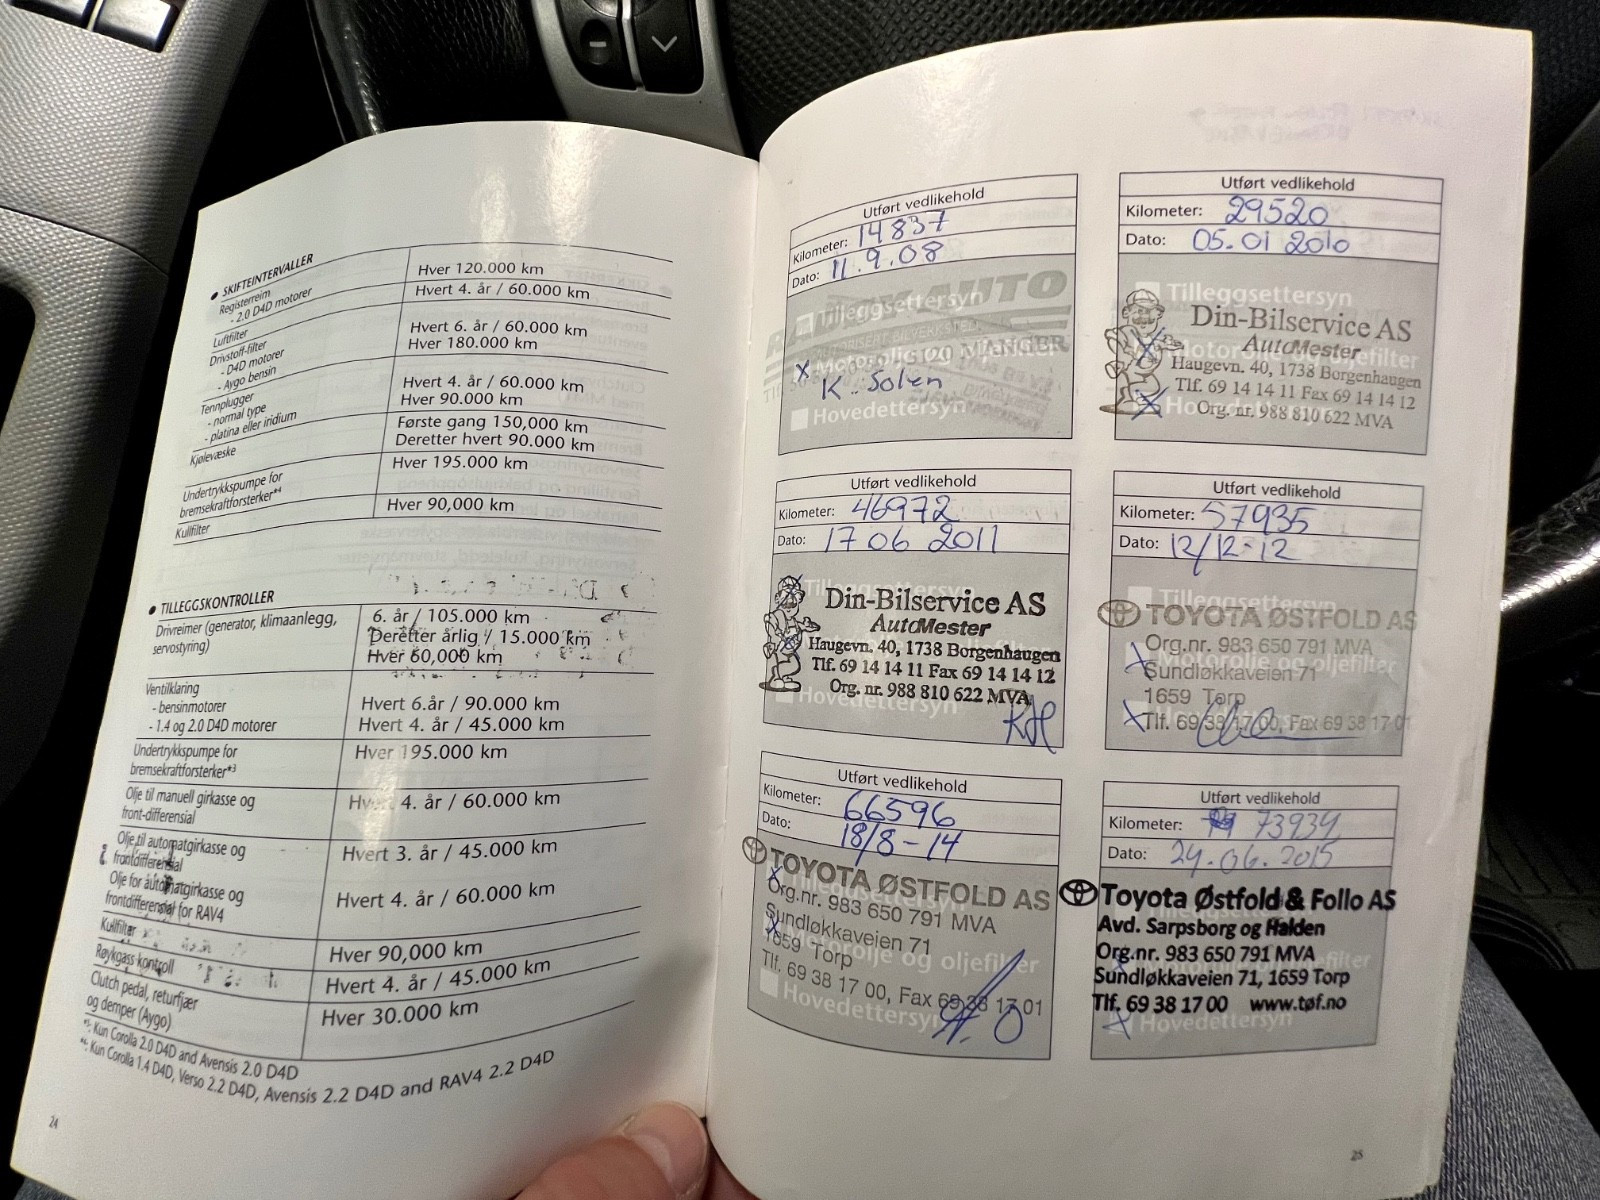 ● SKIFTEINTERVALLER
Registerreim
- 2.0 D4D motorer
Hver 120.000 km
Luftfilter
Hvert 4. år / 60.000 km
Drivstoff-filter
- D4D motorer
Hvert 6. år / 60.000 km
- Aygo bensin
Hver 180.000 km
Tennplugger
- normal type
Hvert 4. år / 60.000 km
- platina eller iridium
Hver 90.000 km
Kjølevæske
Første gang 150,000 km
Deretter hvert 90.000 km
Undertrykkspumpe for
bremsekraftforsterker*4
Hver 195.000 km
Kullfilter
Hver 90,000 km
● TILLEGGSKONTROLLER
Drivreimer (generator, klimaanlegg,
servostyring)
6. år / 105.000 km
Deretter årlig / 15.000 km
Hver 60,000 km
Ventilklaring
- bensinmotorer
Hvert 6.år / 90.000 km
- 1.4 og 2.0 D4D motorer
Hvert 4. år / 45.000 km
Undertrykkspumpe for
bremsekraftforsterker*3
Hver 195.000 km
Olje til manuell girkasse og
front-differensial
Hvert 4. år / 60.000 km
Olje til automatgirkasse og
frontdifferensial
Hvert 3. år / 45.000 km
Olje for automatgirkasse og
frontdifferensial for RAV4
Hvert 4. år / 60.000 km
Kullfilter
Hver 90,000 km
Røykgass kontroll
Hvert 4. år / 45.000 km
Clutch pedal, returfjær
og demper (Aygo)
Hver 30.000 km
*3: Kun Corolla 2.0 D4D and Avensis 2.0 D4D
*4: Kun Corolla 1.4 D4D, Verso 2.2 D4D, Avensis 2.2 D4D and RAV4 2.2 D4D
24
Utført vedlikehold
Kilometer: 14837
Dato: 11.9.08
Tilleggsettersyn
AUTO
Motorolje og
MANGER
K. Solen
Hovedettersyn
Utført vedlikehold
Kilometer: 29520
Dato: 05.01 2010
Tilleggsettersyn
Din-Bilservice AS
AutoMester
Motorolje og oljefilter
Haugevn. 40, 1738 Borgenhaugen
Tlf. 69 14 14 11 Fax 69 14 14 12
Org. nr. 988 810 622 MVA
Utført vedlikehold
Kilometer: 46972
Dato: 17 06 2011
Tilleggsettersyn
Din-Bilservice AS
AutoMester
Haugevn. 40, 1738 Borgenhaugen
Tlf. 69 14 14 11 Fax 69 14 14 12
Org. nr. 988 810 622 MVA
Hovedettersyn
Utført vedlikehold
Kilometer: 57935
Dato: 12/12-12
Tilleggsettersyn
TOYOTA ØSTFOLD AS
Org.nr. 983 650 791 MVA
Motorolje og oljefilter
Sundløkkaveien 71
1659 Torp
Tlf. 69 38 17 00, Fax 69 38 17 01
Utført vedlikehold
Kilometer: 66596
Dato: 18/8-14
TOYOTA ØSTFOLD AS
Tilleggsettersyn
Org.nr. 983 650 791 MVA
Sundløkkaveien 71
Motorolje og oljefilter
1659 Torp
Tlf. 69 38 17 00, Fax 69 38 17 01
Hovedettersyn
Utført vedlikehold
Kilometer: 73934
Dato: 24.06.2015
Toyota Østfold & Follo AS
Avd. Sarpsborg og Halden
Org.nr. 983 650 791 MVA
Sundløkkaveien 71, 1659 Torp
Tlf. 69 38 17 00 www.tøf.no
Hovedettersyn
25